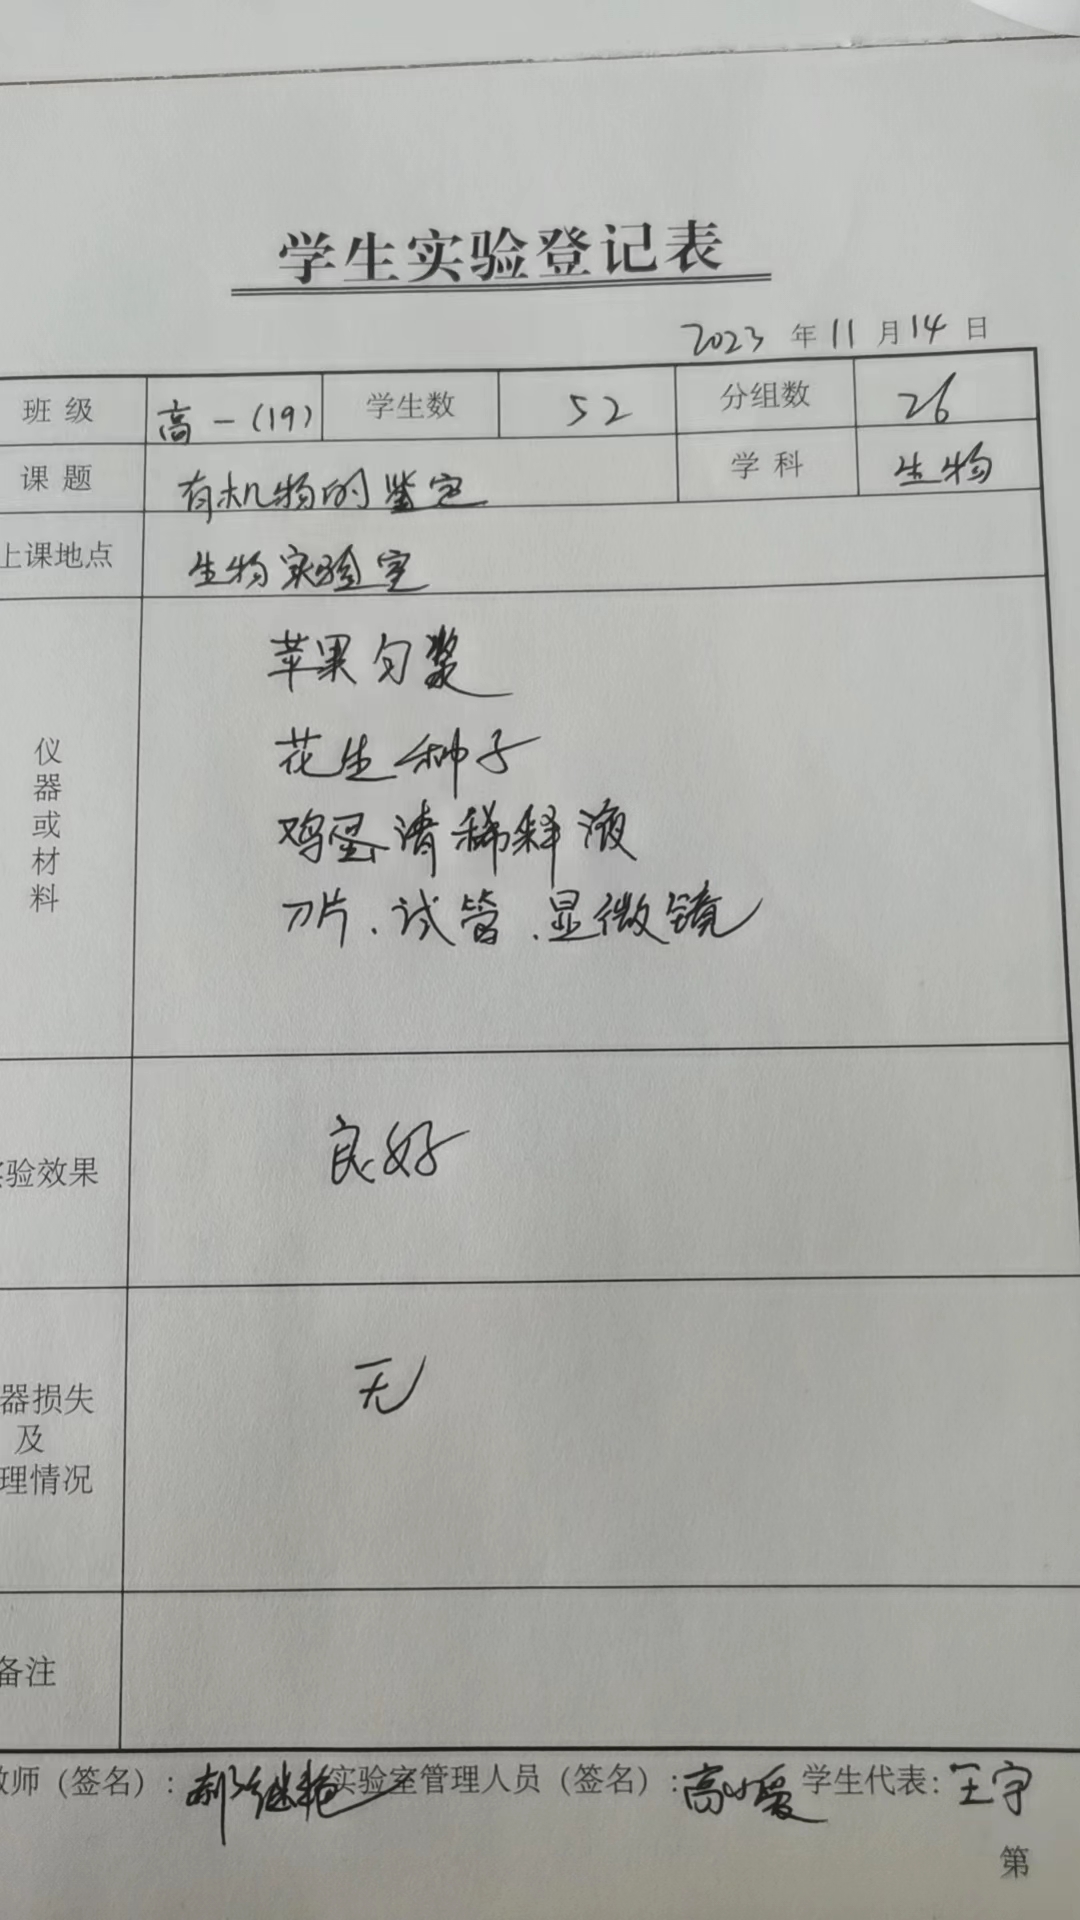 学生实验登记表
2023 年 11 月 14 日
班 级 高一(19) 学生数 52 分组数 26
课 题 有机物的鉴定 学 科 生物
上课地点 生物实验室
仪器或材料
苹果匀浆
花生种子
鸡蛋清稀释液
刀片、试管、显微镜
验效果 良好
器损失
及
理情况
无
备注
教师（签名）: 实验室管理人员（签名）: 高媛 学生代表: 王宇
第